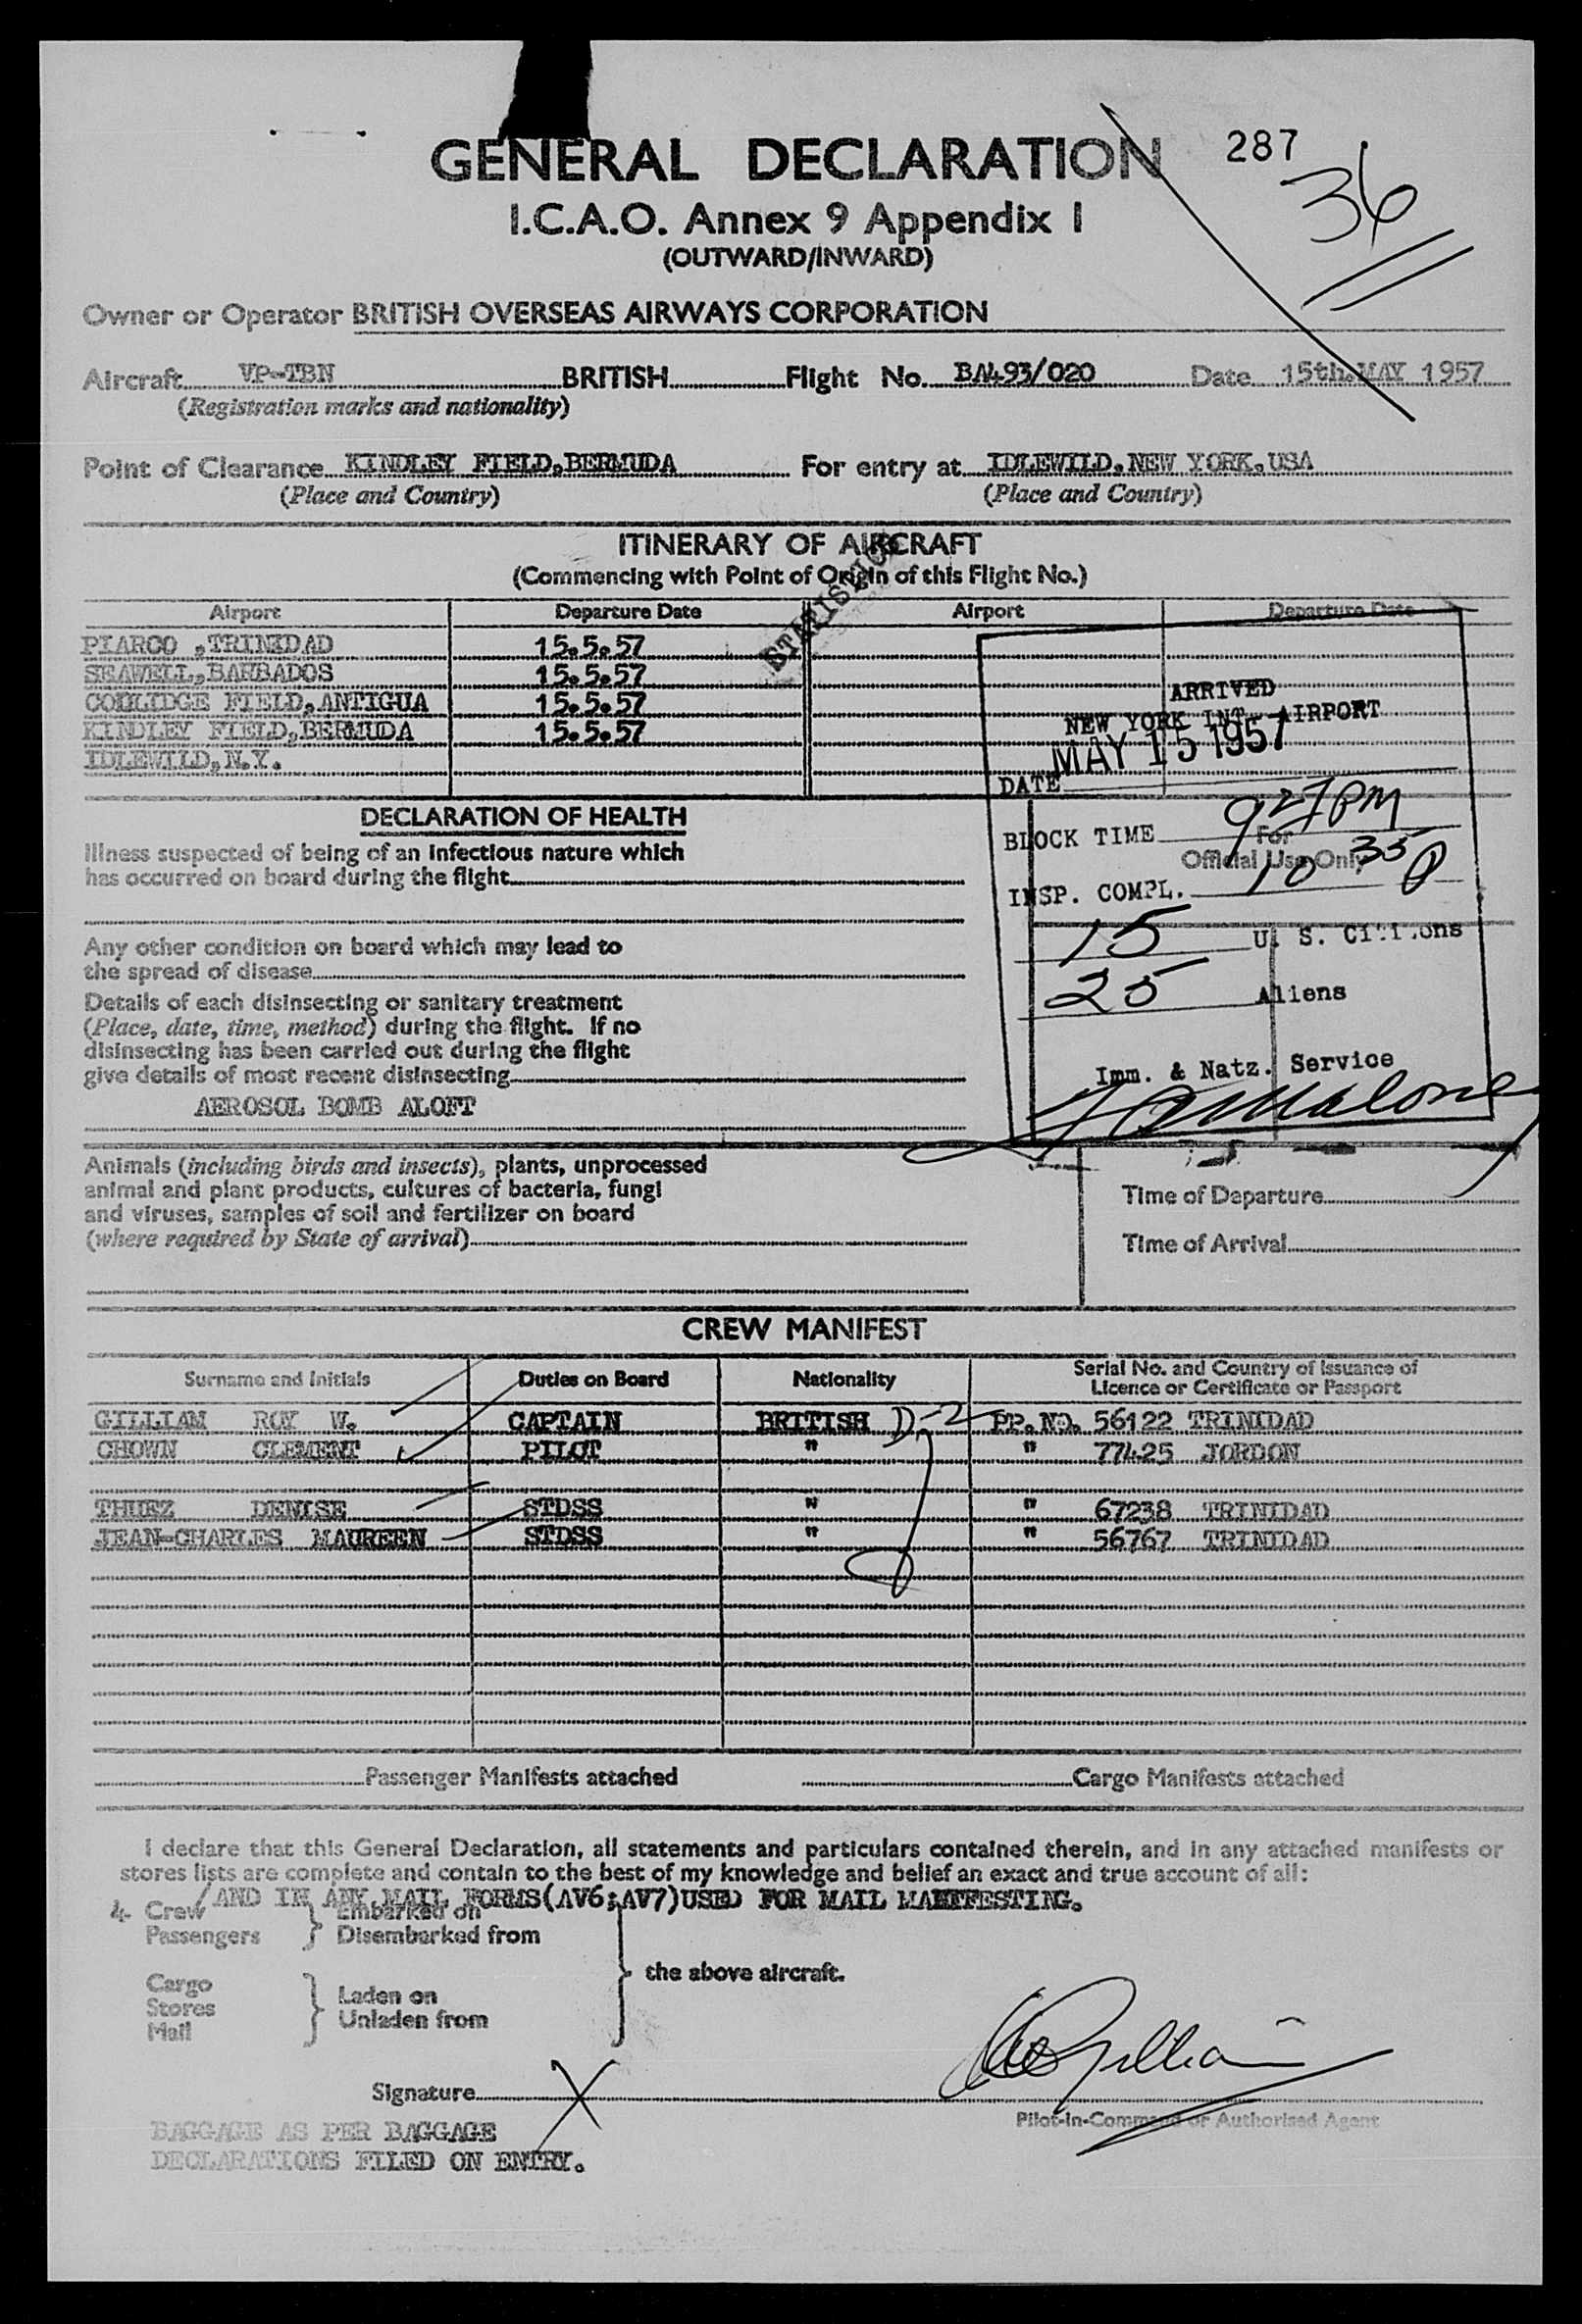 GENERAL DECLARATION
287
36
I.C.A.O. Annex 9 Appendix I
(OUTWARD/INWARD)
Owner or Operator BRITISH OVERSEAS AIRWAYS CORPORATION
Aircraft VP-TBN BRITISH Flight No. BA493/020 Date 15th.MAY 1957
(Registration marks and nationality)
Point of Clearance KINDLEY FIELD,BERMUDA For entry at IDLEWILD,NEW YORK,USA
(Place and Country) (Place and Country)
ITINERARY OF AIRCRAFT
(Commencing with Point of Origin of this Flight No.)
Airport Departure Date Airport Departure Date
PIARCO ,TRINIDAD 15.5.57
SEAWELL,BARBADOS 15.5.57
COOLIDGE FIELD,ANTIGUA 15.5.57
KINDLEY FIELD,BERMUDA 15.5.57
IDLEWILD,N.Y.
ARRIVED
NEW YORK INT. AIRPORT
DATE MAY 15 1957
BLOCK TIME 927 PM
For
Official Use Only
INSP. COMPL. 10 35
15 U. S. Citizens
25 Aliens
Imm. & Natz. Service
DECLARATION OF HEALTH
Illness suspected of being of an infectious nature which
has occurred on board during the flight
Any other condition on board which may lead to
the spread of disease
Details of each disinsecting or sanitary treatment
(Place, date, time, method) during the flight. If no
disinsecting has been carried out during the flight
give details of most recent disinsecting
AEROSOL BOMB ALOFT
Animals (including birds and insects), plants, unprocessed
animal and plant products, cultures of bacteria, fungi
and viruses, samples of soil and fertilizer on board
(where required by State of arrival)
Time of Departure
Time of Arrival
CREW MANIFEST
Surname and Initials Duties on Board Nationality Serial No. and Country of Issuance of
Licence or Certificate or Passport
GILLIAM ROY W. CAPTAIN BRITISH D-2 PP.NO. 56122 TRINIDAD
CHOWN CLEMENT PILOT " " 77425 JORDON
THUEZ DENISE STDSS " " 67238 TRINIDAD
JEAN-CHARLES MAUREEN STDSS " " 56767 TRINIDAD
Passenger Manifests attached Cargo Manifests attached
I declare that this General Declaration, all statements and particulars contained therein, and in any attached manifests or
stores lists are complete and contain to the best of my knowledge and belief an exact and true account of all:
/AND IN ANY MAIL FORMS(AV6;AV7)USED FOR MAIL MANIFESTING.
4 Crew Embarked on
Passengers Disembarked from
the above aircraft.
Cargo
Stores
Mail
Laden on
Unladen from
Signature X
Pilot-in-Command or Authorised Agent
BAGGAGE AS PER BAGGAGE
DECLARATIONS FILED ON ENTRY.